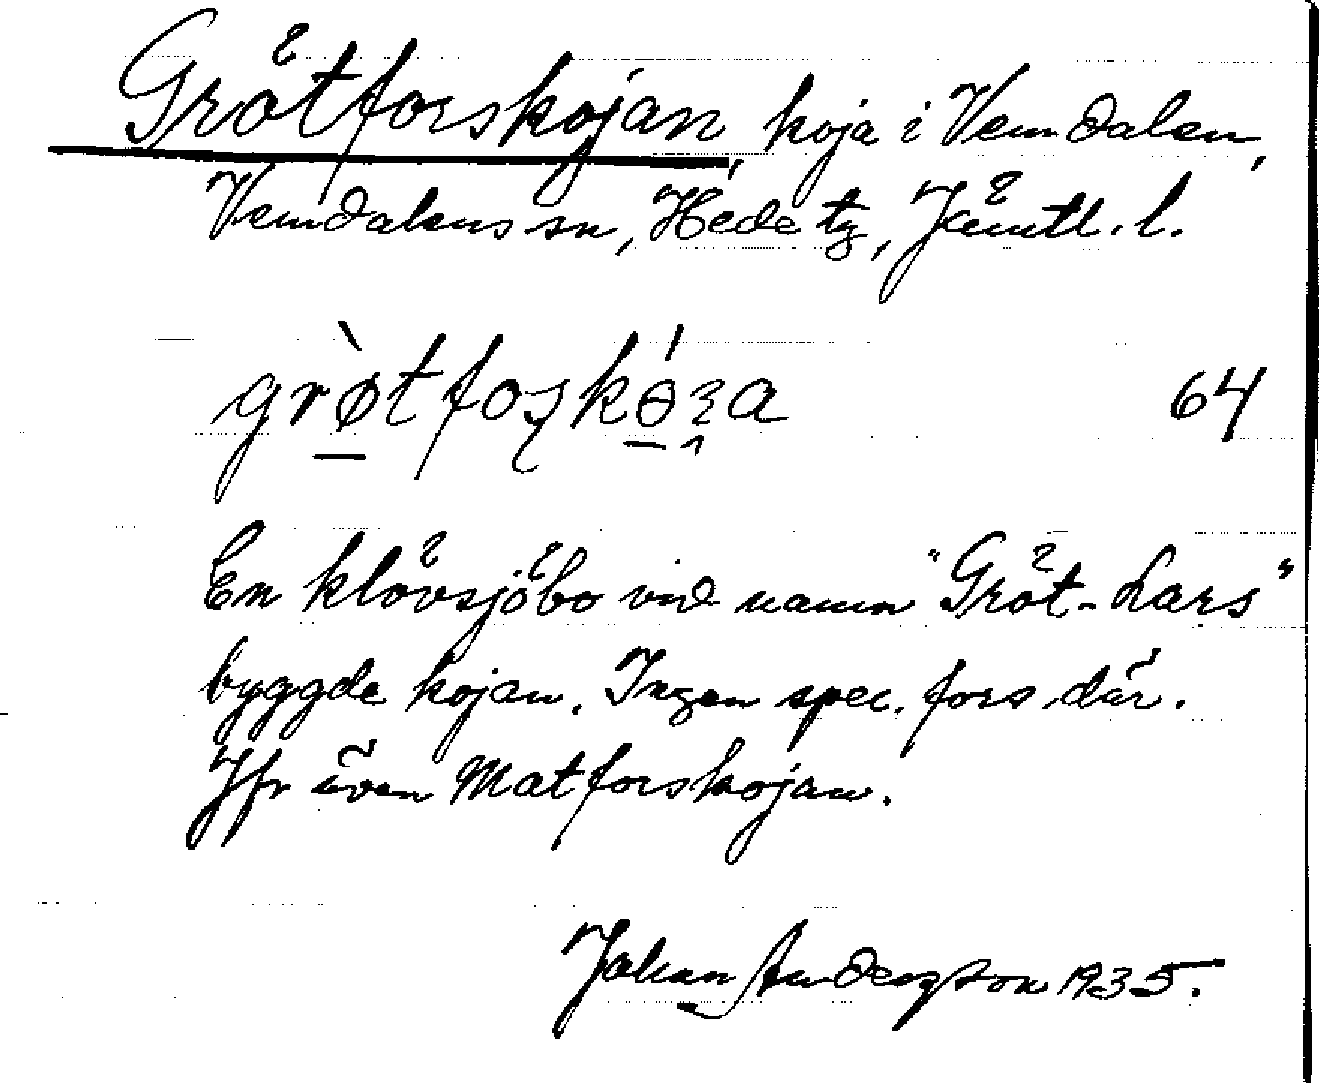 Grötforskojan, koja i Vemdalen,
Vemdalens sn, Hede tg, Jämtl. l.
grø̀tfoʂkɵ́ʒa 64
En klövsjöbo vid namn "Gröt-Lars"
byggde kojan. Ingen spec. fors där.
Jfr även Matforskojan.
Johan Anderzson 1935.